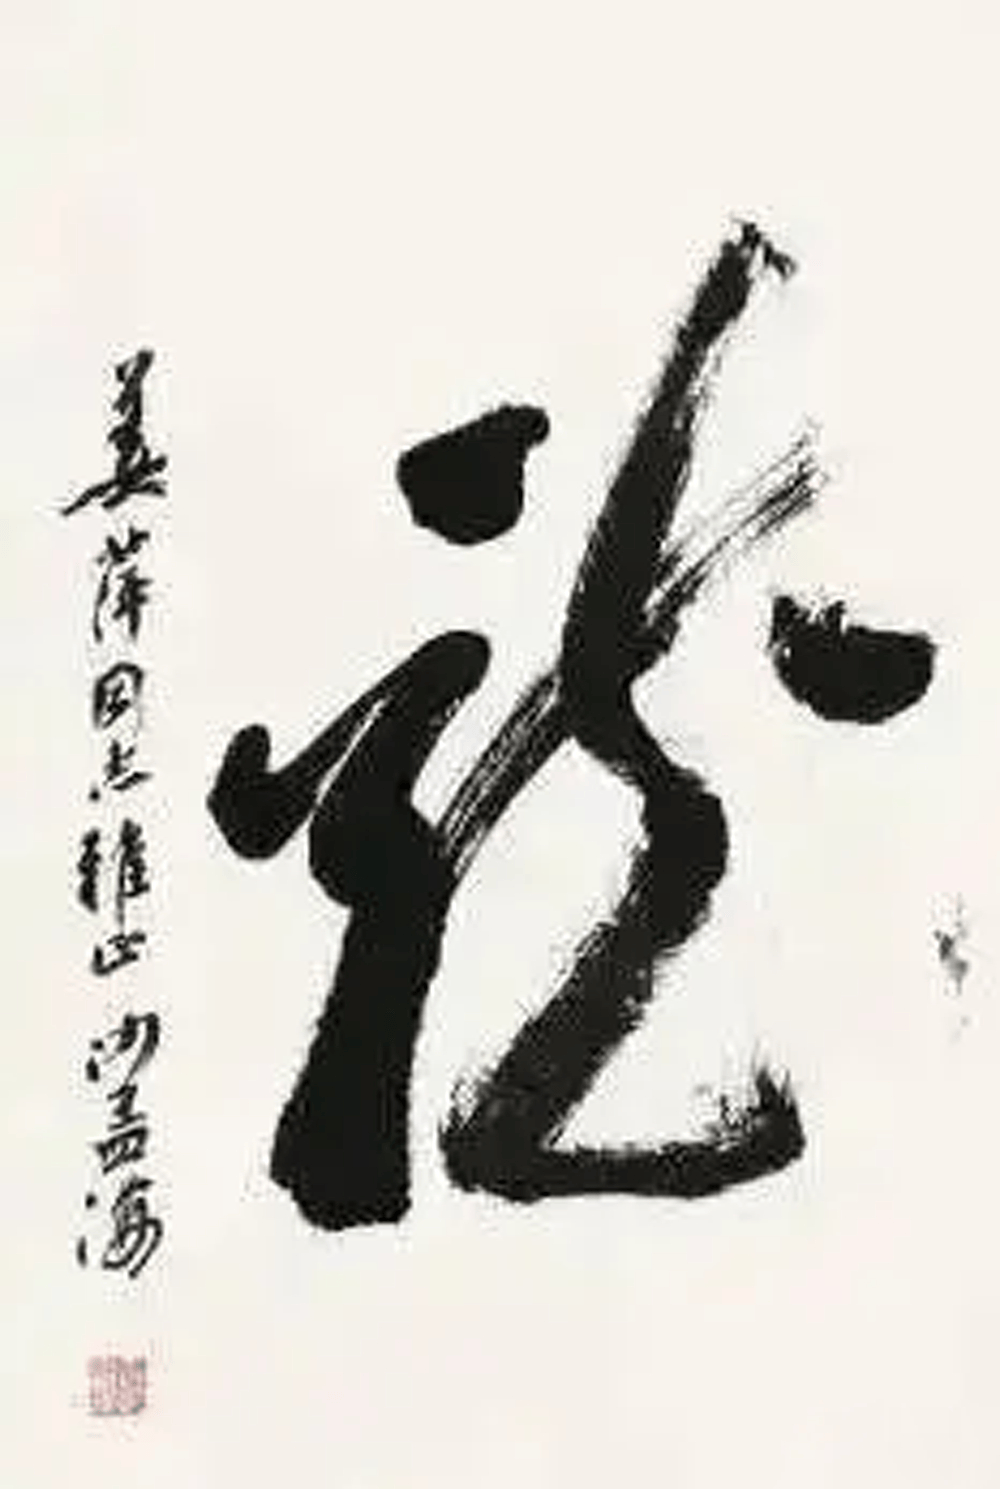 龍
美萍同志雅正 沙孟海